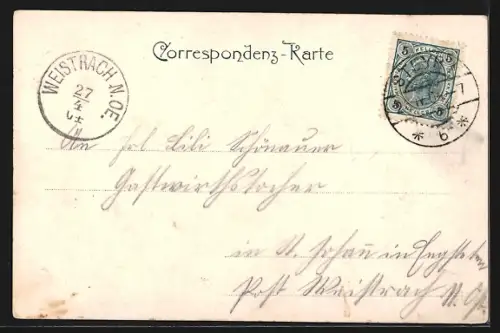 Correspondenz-Karte
WEISTRACH N.OE.
27
4
STEYR
5 5
7
* 6 *
An Frl Lili Schönauer
Gastwirthstochter
in St. Johann in Engstetten
Post Weistrach N. Ö.